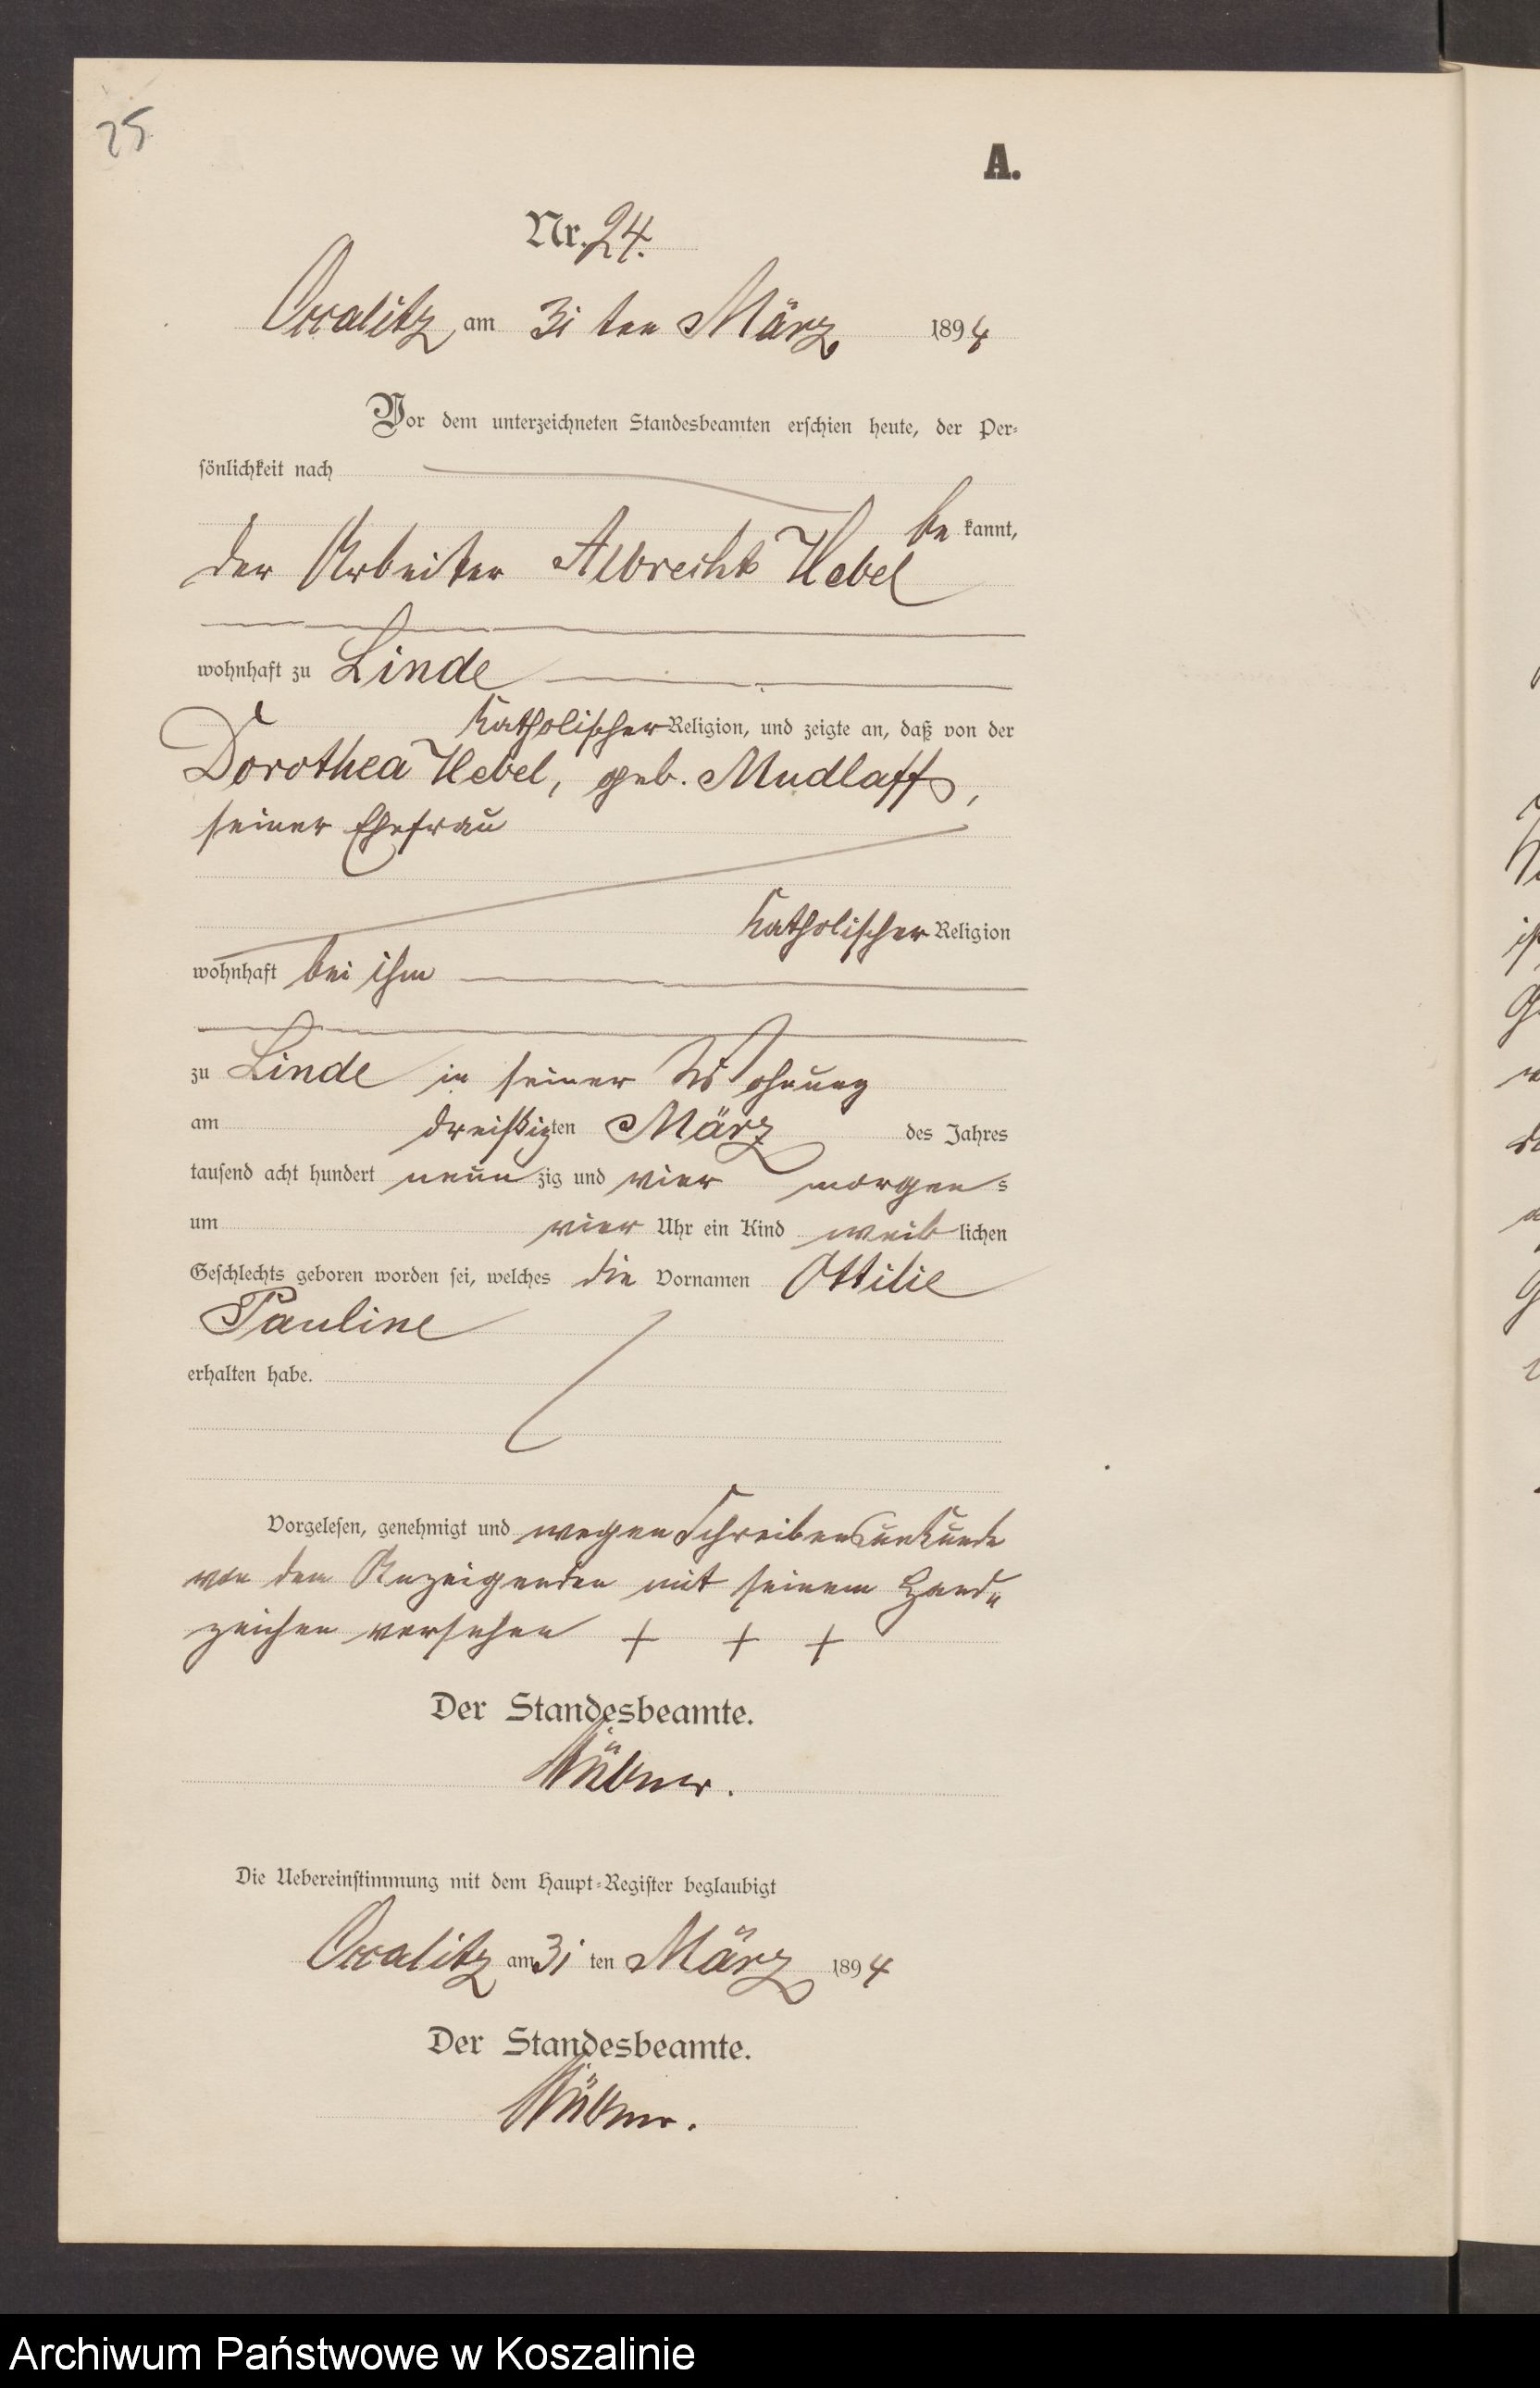 25
A.
Nr. 24.
am 31 ten März 1894
Vor dem unterzeichneten Standesbeamten erschien heute, der Per-
sönlichkeit nach
be kannt,
der Arbeiter Albrecht Hebel
wohnhaft zu Linde
katholischer Religion, und zeigte an, daß von der
Dorothea Hebel, geb. Mudlaff,
seiner Ehefrau
katholischer Religion
wohnhaft bei ihm
zu Linde in seiner Wohnung
am dreißigten März des Jahres
tausend acht hundert neun zig und vier morgens
um vier Uhr ein Kind weib lichen
Geschlechts geboren worden sei, welches die Vornamen Ottilie
Pauline
erhalten habe.
Vorgelesen, genehmigt und wegen Schreibensunkunde
von dem Anzeigenden mit seinem Hand„
zeichen versehen + + +
Der Standesbeamte.
Die Uebereinstimmung mit dem Haupt-Register beglaubigt
am 31 ten März 1894
Der Standesbeamte.
Archiwum Państwowe w Koszalinie